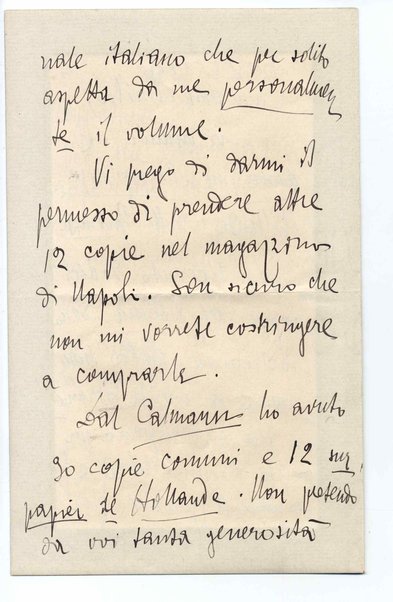 nale italiano che per solito
aspetta da me personalmen
te il volume.
Vi prego di darmi il
permesso di prendere altre
12 copie nel magazzino
di Napoli. Son sicuro che
non mi vorrete costringere
a comprarle.
Dal Calmann ho avuto
30 copie comuni e 12 sur
papier de Hollande. Non pretendo
da voi tanta generosità